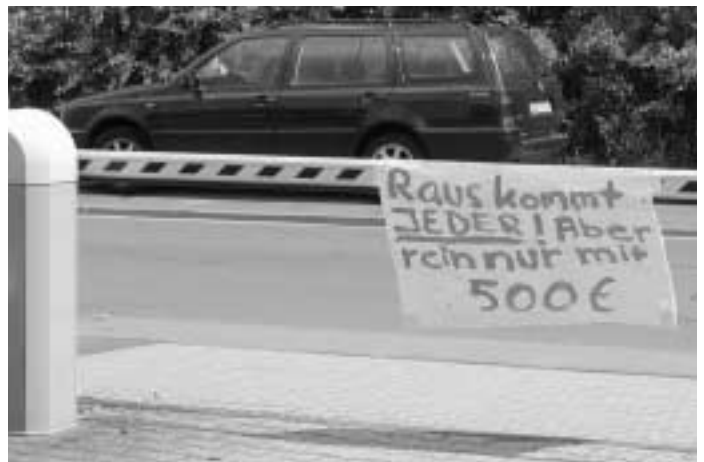 Raus kommt
JEDER! Aber
rein nur mit
500€